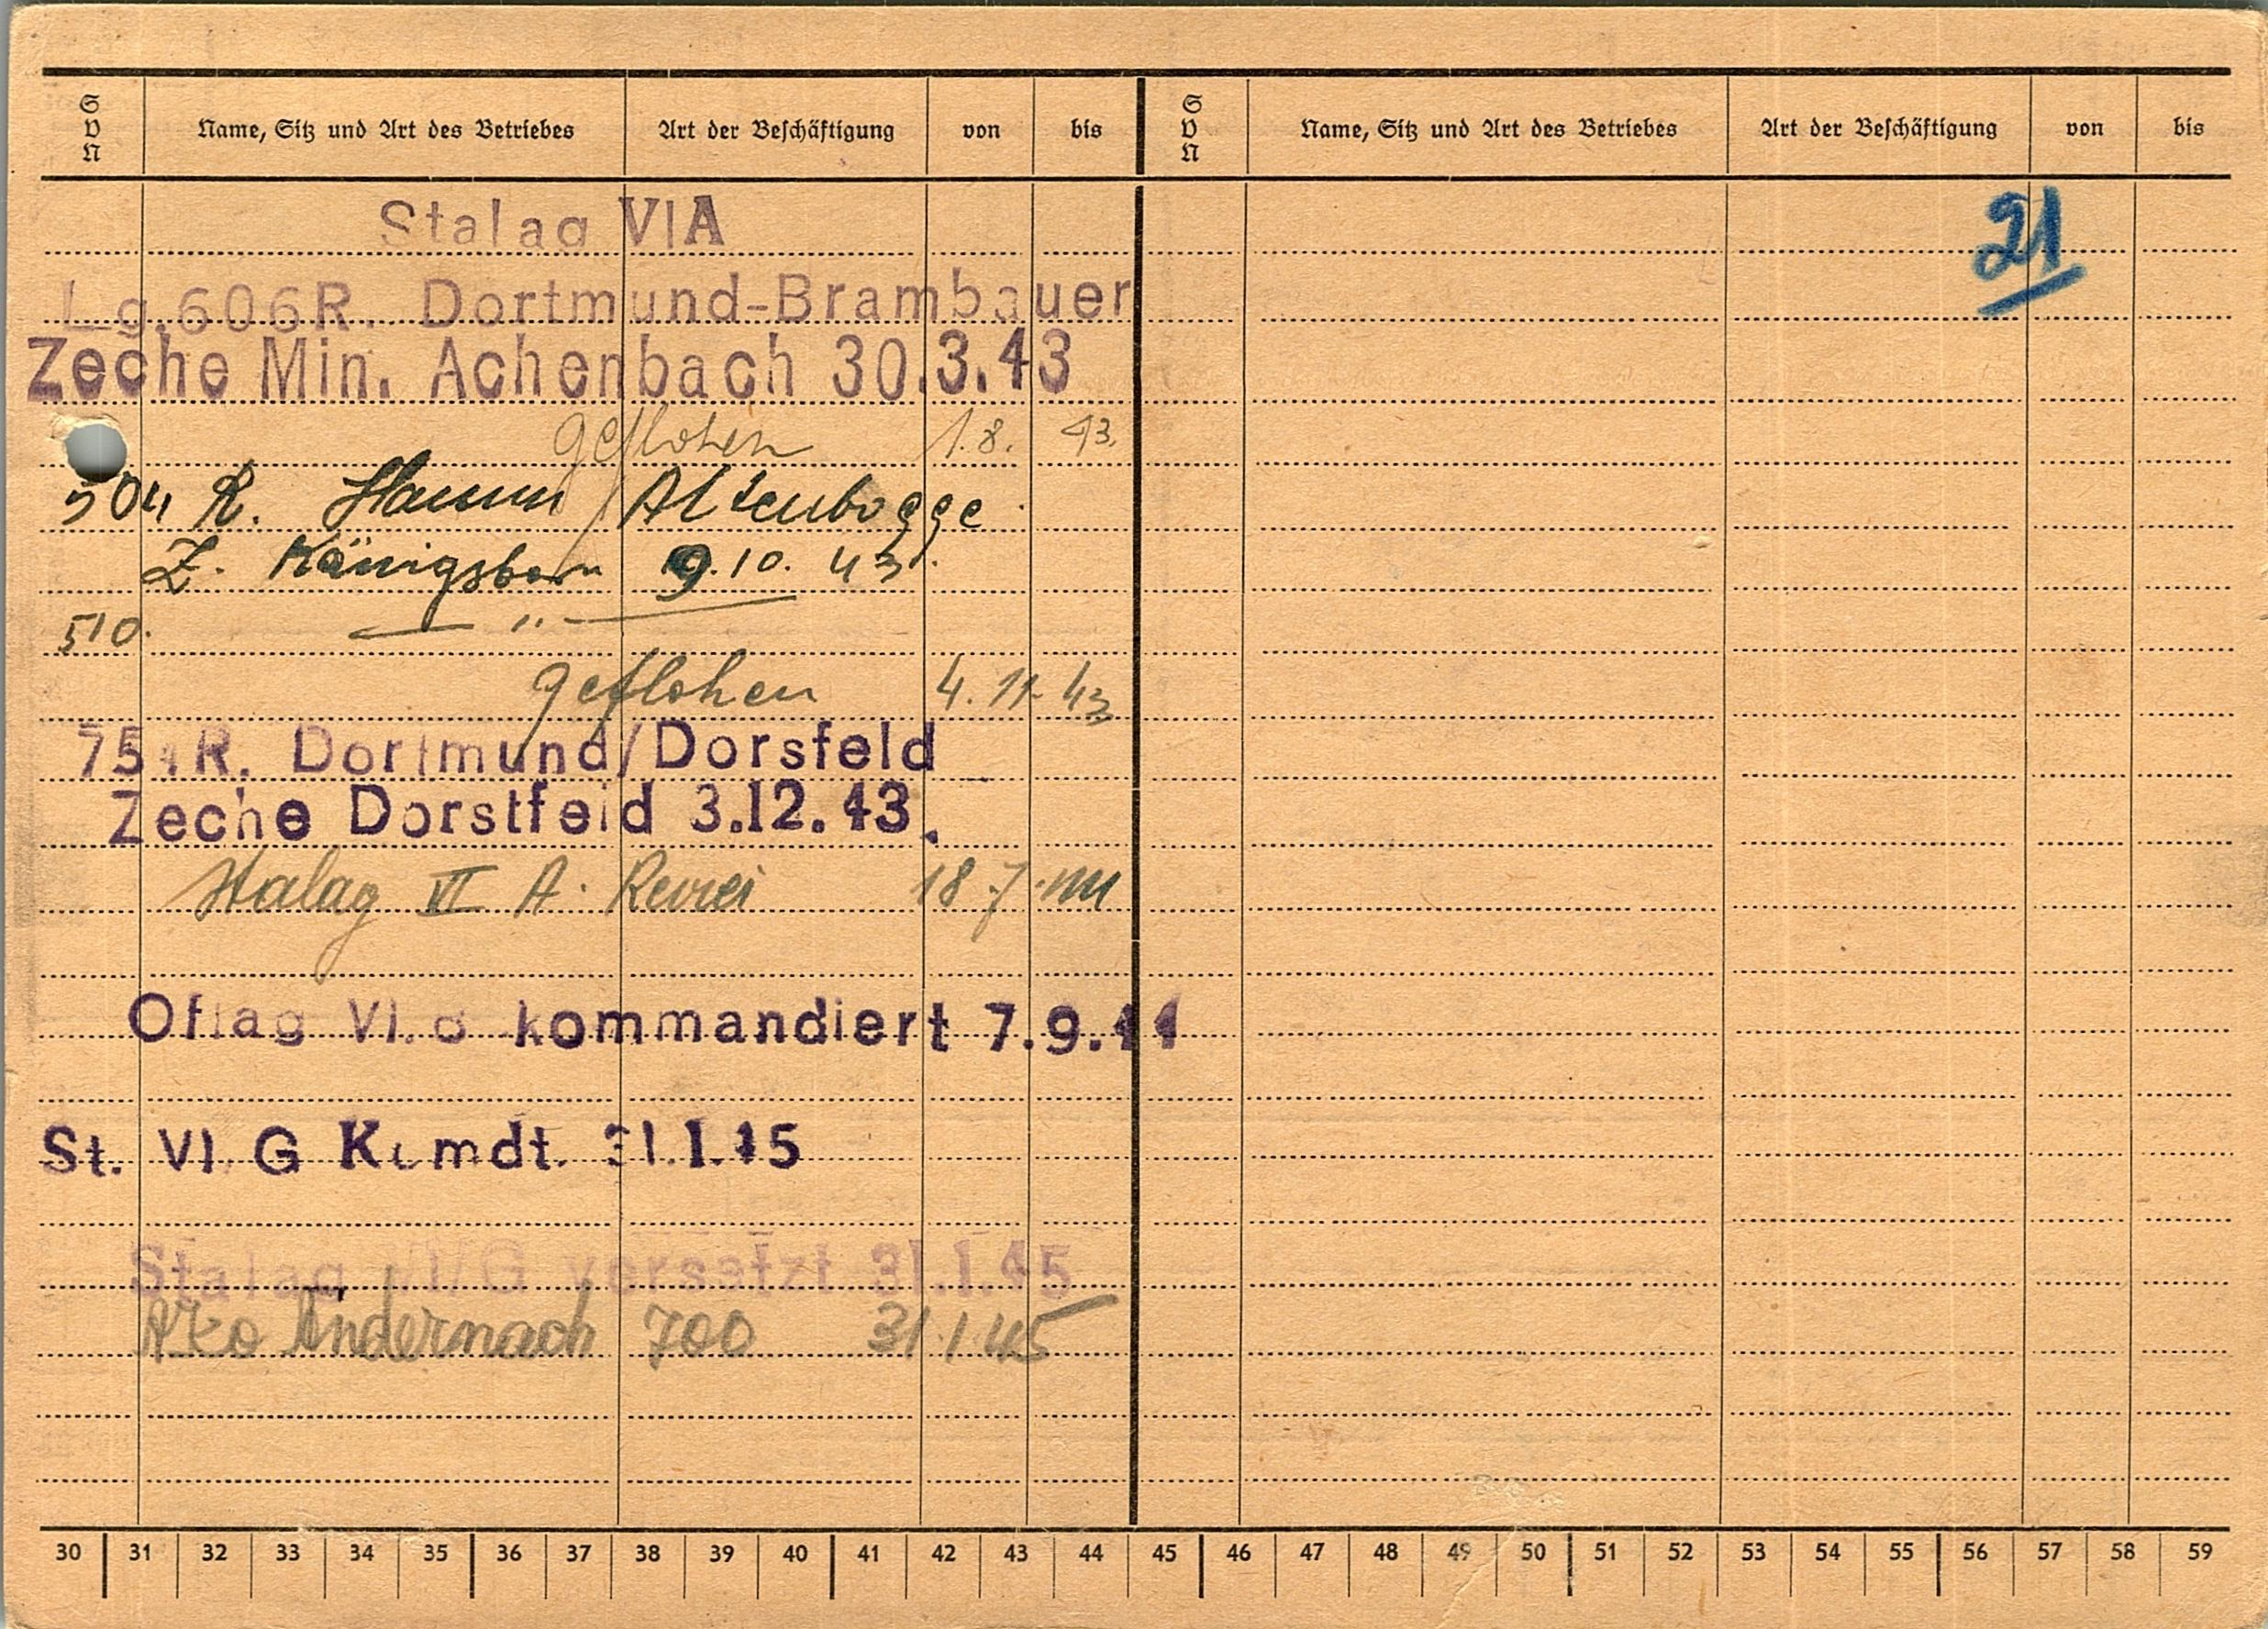 S v N
Name, Sitz und Art des Betriebes
Art der Beschäftigung
von
bis
S v N
Name, Sitz und Art des Betriebes
Art der Beschäftigung
von
bis
21
Stalag VI A
Lg. 606 R. Dortmund-Brambauer
Zeche Min. Achenbach 30.3.43
geflohen 1.8. 43.
504 R. Hamm / Altenbögge
Z. Königsborn 9.10. 43.
510. — " —
geflohen 4. 11. 43
R. Dortmund/Dorsfeld
Zeche Dorstfeld 3.12.43.
Stalag VI A. Revier 18.7.44
Oflag VI. kommandiert 7.9.44
St. VI. G Komdt. 31.1.45
Stalag VI G versetzt 31.1.45
Andernach 700 31.1.45
30 31 32 33 34 35 36 37 38 39 40 41 42 43 44 45 46 47 48 49 50 51 52 53 54 55 56 57 58 59